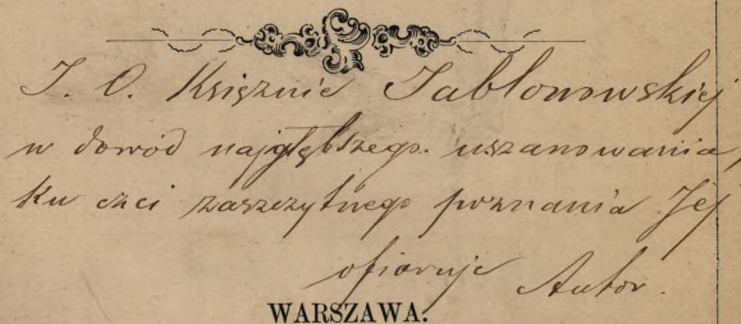 J. O. Księżnie Jabłonowskiej
w dowód najgłębszego uszanowania,
ku czci zaszczytnego poznania Jej
ofiaruje Autor.
WARSZAWA.